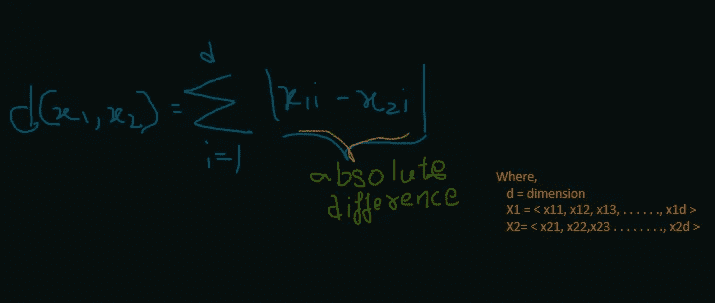 d(x₁, x₂) = d∑i=1 |x₁i - x₂i|
absolute
difference
Where,
d = dimension
X1 = < x11, x12, x13, . . . . . ., x1d >
X2= < x21, x22,x23 . . . . . . . ., x2d >